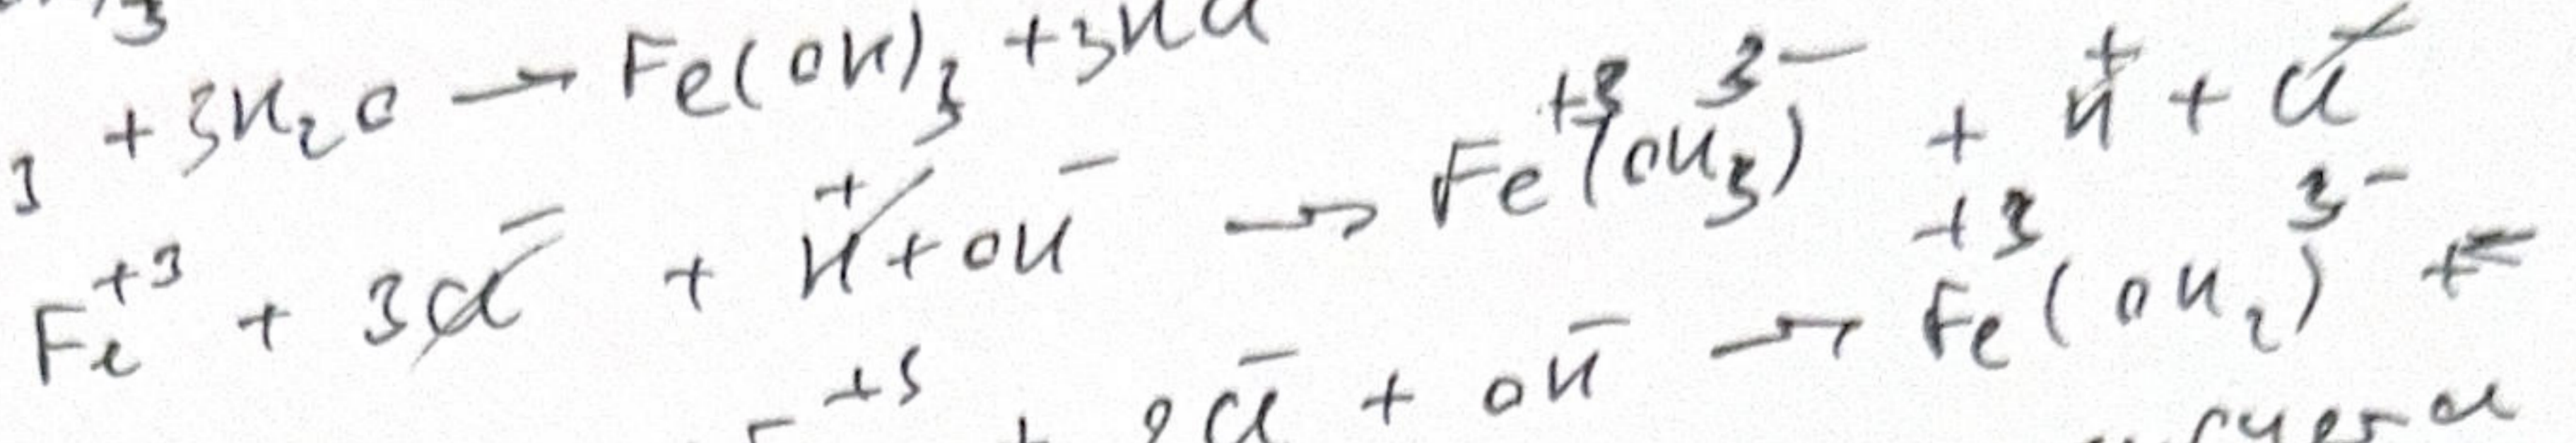 3
3 + 3H₂O → Fe(OH)₃ + 3HCl
Fe⁺³ + 3Cl⁻ + H⁺ + OH⁻ → Fe⁺³(OH₃)³⁻ + H⁺ + Cl⁻
+ 2Cl⁻ + OH⁻ → Fe⁺³(OH₂)³⁻ +